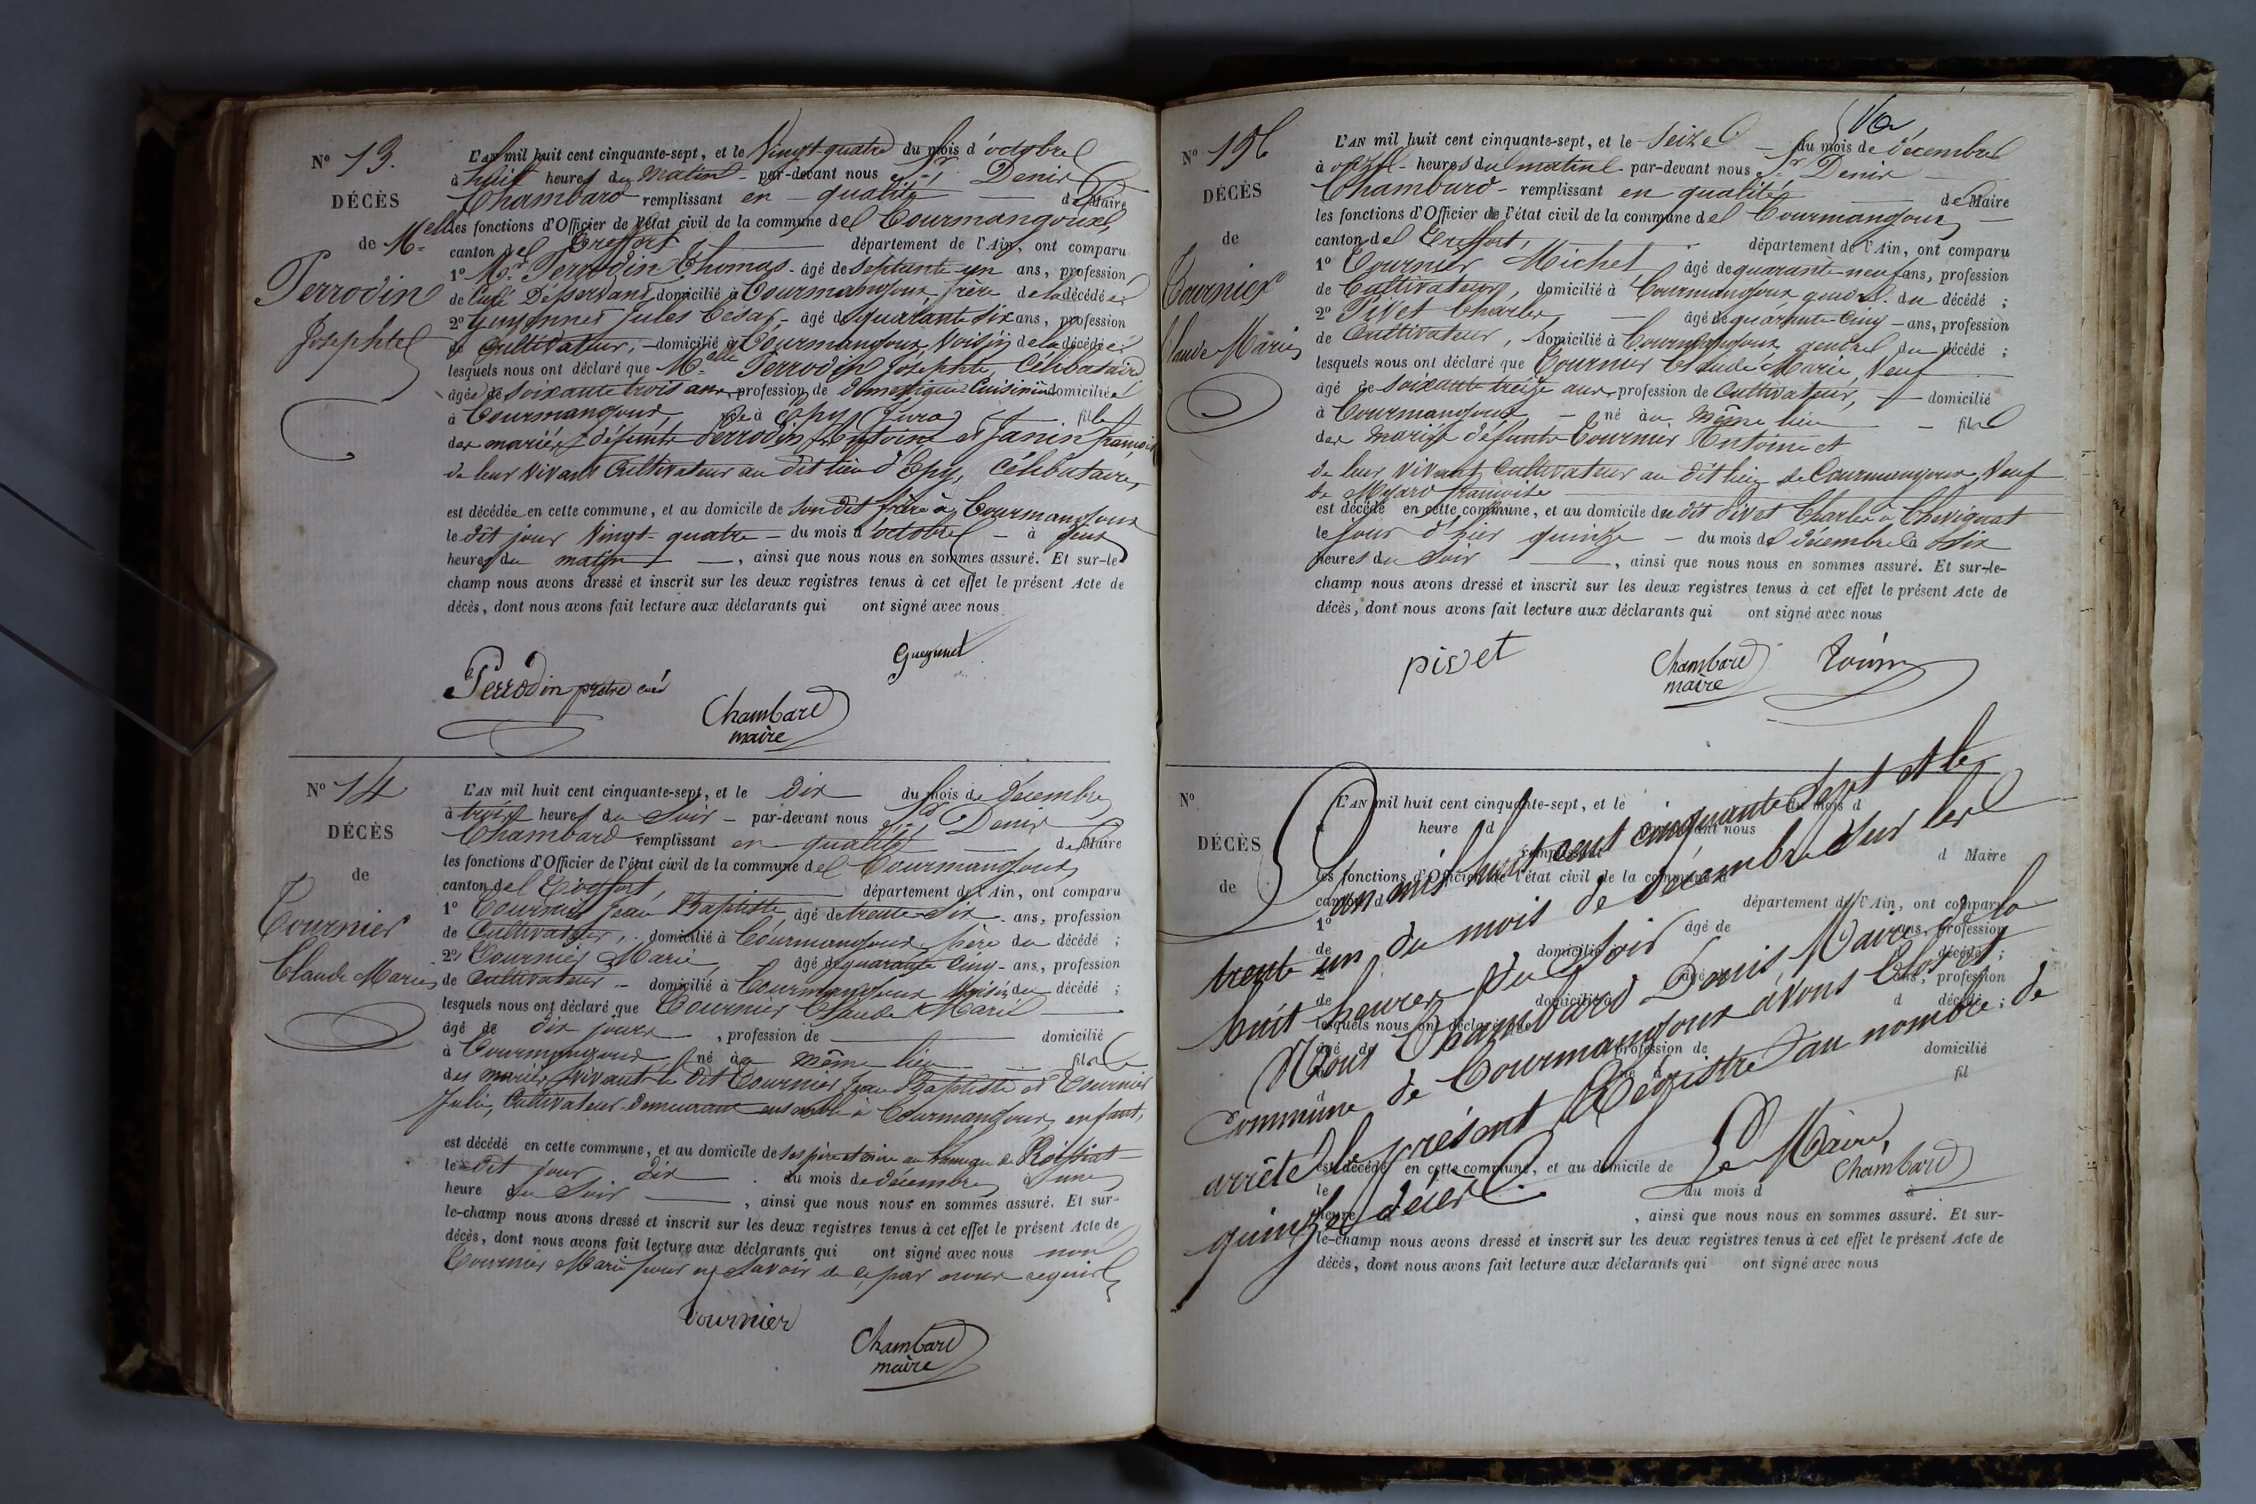 N° 13.
DÉCÈS
de Melle
Perrodin
Josephte
L'AN mil huit cent cinquante-sept, et le Vingt-quatre du mois d'octobre
à huit heures du matin - par-devant nous Sr Denis
Chambard remplissant en qualité de Maire
les fonctions d'Officier de l'état civil de la commune de Courmangoux
canton de Treffort département de l'Ain, ont comparu
1° Mr Perrodin Thomas - âgé de septante un ans, profession
de Curé Desservant domicilié à Courmangoux frère de la décédée
2° Guyennet Jules César - âgé de quarante six ans, profession
de Cultivateur, - domicilié à Courmangoux, Voisin de la décédée
lesquels nous ont déclaré que Melle Perrodin Josephte, Célibataire
âgée de soixante trois ans profession de Domestique Cuisinière domiciliée
à Courmangoux, née à Epy (Jura) fille
des mariés défunts Perrodin Antoine et Janin françoise
de leur vivant Cultivateur au dit lieu d'Epy, Célibataire,
est décédée en cette commune, et au domicile de son dit frère à Courmangoux
le dit jour Vingt-quatre - du mois d'octobre - à deux
heures du matin -, ainsi que nous nous en sommes assuré. Et sur-le-
champ nous avons dressé et inscrit sur les deux registres tenus à cet effet le présent Acte de
décès, dont nous avons fait lecture aux déclarants qui ont signé avec nous
Guyennet
Perrodin prêtre curé
Chambard
maire
N° 14
DÉCÈS
de
Tournier
Claude Marie
L'AN mil huit cent cinquante-sept, et le dix du mois de décembre
à trois heures du Soir - par-devant nous Sr Denis
Chambard remplissant en qualité de Maire
les fonctions d'Officier de l'état civil de la commune de Courmangoux
canton de Treffort, département de l'Ain, ont comparu
1° Tournier Jean Baptiste âgé de trente-six ans, profession
de Cultivateur, domicilié à Courmangoux père du décédé ;
2° Tournier Marie, âgé de quarante cinq - ans, profession
de Cultivateur - domicilié à Courmangoux Voisin du décédé ;
lesquels nous ont déclaré que Tournier Claude Marie
âgé de dix jours, profession de domicilié
à Courmangoux né à même lieu fils
des mariés vivants le dit Tournier Jean Baptiste et Tournier
Julie, Cultivateur demeurant ensemble à Courmangoux, enfant,
est décédé en cette commune, et au domicile de ses père et mère au hameau de Roissiat
le dit jour dix du mois de décembre à une
heure du Soir, ainsi que nous nous en sommes assuré. Et sur-
le-champ nous avons dressé et inscrit sur les deux registres tenus à cet effet le présent Acte de
décès, dont nous avons fait lecture aux déclarants qui ont signé avec nous non
Tournier Marie pour ne savoir de ce par nous requis
Tournier
Chambard
maire
N° 15
DÉCÈS
de
Tournier
Claude Marie
L'AN mil huit cent cinquante-sept, et le Seize - du mois de décembre
à onze - heures du matin par-devant nous Sr Denis
Chambard - remplissant en qualité de Maire
les fonctions d'Officier de l'état civil de la commune de Courmangoux
canton de Treffort, département de l'Ain, ont comparu
1° Tournier Michel, âgé de quarante-neuf ans, profession
de Cultivateur, domicilié à Courmangoux gendre du décédé ;
2° Pivet Charles - âgé de quarante-Cinq - ans, profession
de Cultivateur, domicilié à Courmangoux gendre du décédé ;
lesquels nous ont déclaré que Tournier Claude Marie, Veuf
âgé de Soixante treize ans profession de Cultivateur, domicilié
à Courmangoux - né au même lieu - fils
des mariés défunts Tournier Antoine et
de leur vivant Cultivateur au dit lieu de Courmangoux, Veuf
de françoise
est décédé en cette commune, et au domicile du dit Pivet Charles à Chevignat
le jour d'hier quinze - du mois de décembre à six
heures du Soir, ainsi que nous nous en sommes assuré. Et sur-le-
champ nous avons dressé et inscrit sur les deux registres tenus à cet effet le présent Acte de
décès, dont nous avons fait lecture aux déclarants qui ont signé avec nous
pivet
Chambard
maire
N°
DÉCÈS
de
L'AN mil huit cent cinquante-sept, et le du mois d
heure d
remplissant d Maire
les fonctions d'Officier de l'état civil de la commune d
canton d département de l'Ain, ont comparu
1° âgé de ans, profession
de domicilié décédé ;
ans, profession
de domicilié à d décédé ;
lesquels nous ont déclaré que
âgé d profession de domicilié
fil
L'an mil huit cent cinquante Sept et le
trente un du mois de décembre Sur les
huit heures du Soir
Nous Chambard Denis Maire de la
Commune de Courmangoux avons Clos et
arrêté le présent Régistre au nombre de
quinze décès.
Le Maire,
Chambard
est décédé en cette commune, et au domicile de
le du mois d à
heure, ainsi que nous nous en sommes assuré. Et sur-
le-champ nous avons dressé et inscrit sur les deux registres tenus à cet effet le présent Acte de
décès, dont nous avons fait lecture aux déclarants qui ont signé avec nous